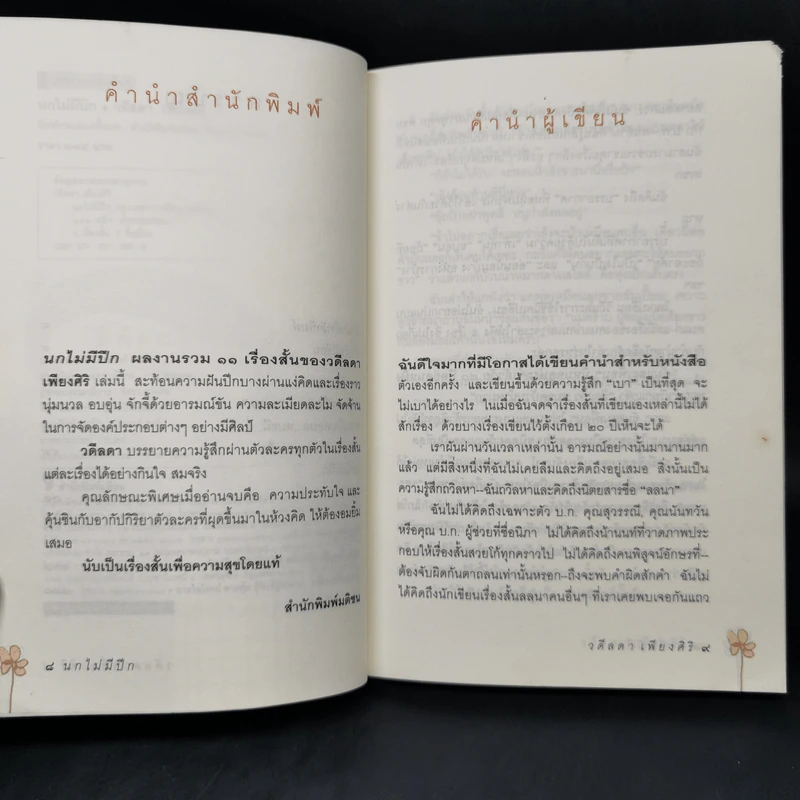 คำนำสำนักพิมพ์
นกไม่มีปีก ผลงานรวม ๑๑ เรื่องสั้นของวดีลดา
เพียงศิริ เล่มนี้ สะท้อนความฝันปีกบางผ่านแง่คิดและเรื่องราว
นุ่มนวล อบอุ่น จักจี้ด้วยอารมณ์ขัน ความละเมียดละไม จัดจ้าน
ในการจัดองค์ประกอบต่างๆ อย่างมีศิลป์
วดีลดา บรรยายความรู้สึกผ่านตัวละครทุกตัวในเรื่องสั้น
แต่ละเรื่องได้อย่างกินใจ สมจริง
คุณลักษณะพิเศษเมื่ออ่านจบคือ ความประทับใจ และ
คุ้นชินกับอากัปกิริยาตัวละครที่ผุดขึ้นมาในห้วงคิด ให้ต้องอมยิ้ม
เสมอ
นับเป็นเรื่องสั้นเพื่อความสุขโดยแท้
สำนักพิมพ์มติชน
๘ นกไม่มีปีก
คำนำผู้เขียน
ฉันดีใจมากที่มีโอกาสได้เขียนคำนำสำหรับหนังสือ
ตัวเองอีกครั้ง และเขียนขึ้นด้วยความรู้สึก “เบา” เป็นที่สุด จะ
ไม่เบาได้อย่างไร ในเมื่อฉันจดจำเรื่องสั้นที่เขียนเองเหล่านี้ไม่ได้
สักเรื่อง ด้วยบางเรื่องเขียนไว้ตั้งเกือบ ๒๐ ปีเห็นจะได้
เราผันผ่านวันเวลาเหล่านั้น อารมณ์อย่างนั้นมานานมาก
แล้ว แต่มีสิ่งหนึ่งที่ฉันไม่เคยลืมและคิดถึงอยู่เสมอ สิ่งนั้นเป็น
ความรู้สึกถวิลหา–ฉันถวิลหาและคิดถึงนิตยสารชื่อ “ลลนา”
ฉันไม่ได้คิดถึงเฉพาะตัว บ.ก. คุณสุวรรณี, คุณนันทวัน
หรือคุณ บ.ก. ผู้ช่วยที่ชื่อนิภา ไม่ได้คิดถึงน้านนท์ที่วาดภาพประ
กอบให้เรื่องสั้นสวยโก้ทุกคราวไป ไม่ได้คิดถึงคนพิสูจน์อักษรที่–
ต้องจับผิดกันตาถลนเท่านั้นหรอก–ถึงจะพบคำผิดสักคำ ฉันไม่
ได้คิดถึงนักเขียนเรื่องสั้นลลนาคนอื่นๆ ที่เราเคยพบเจอกันแถว
วดีลดา เพียงศิริ ๙